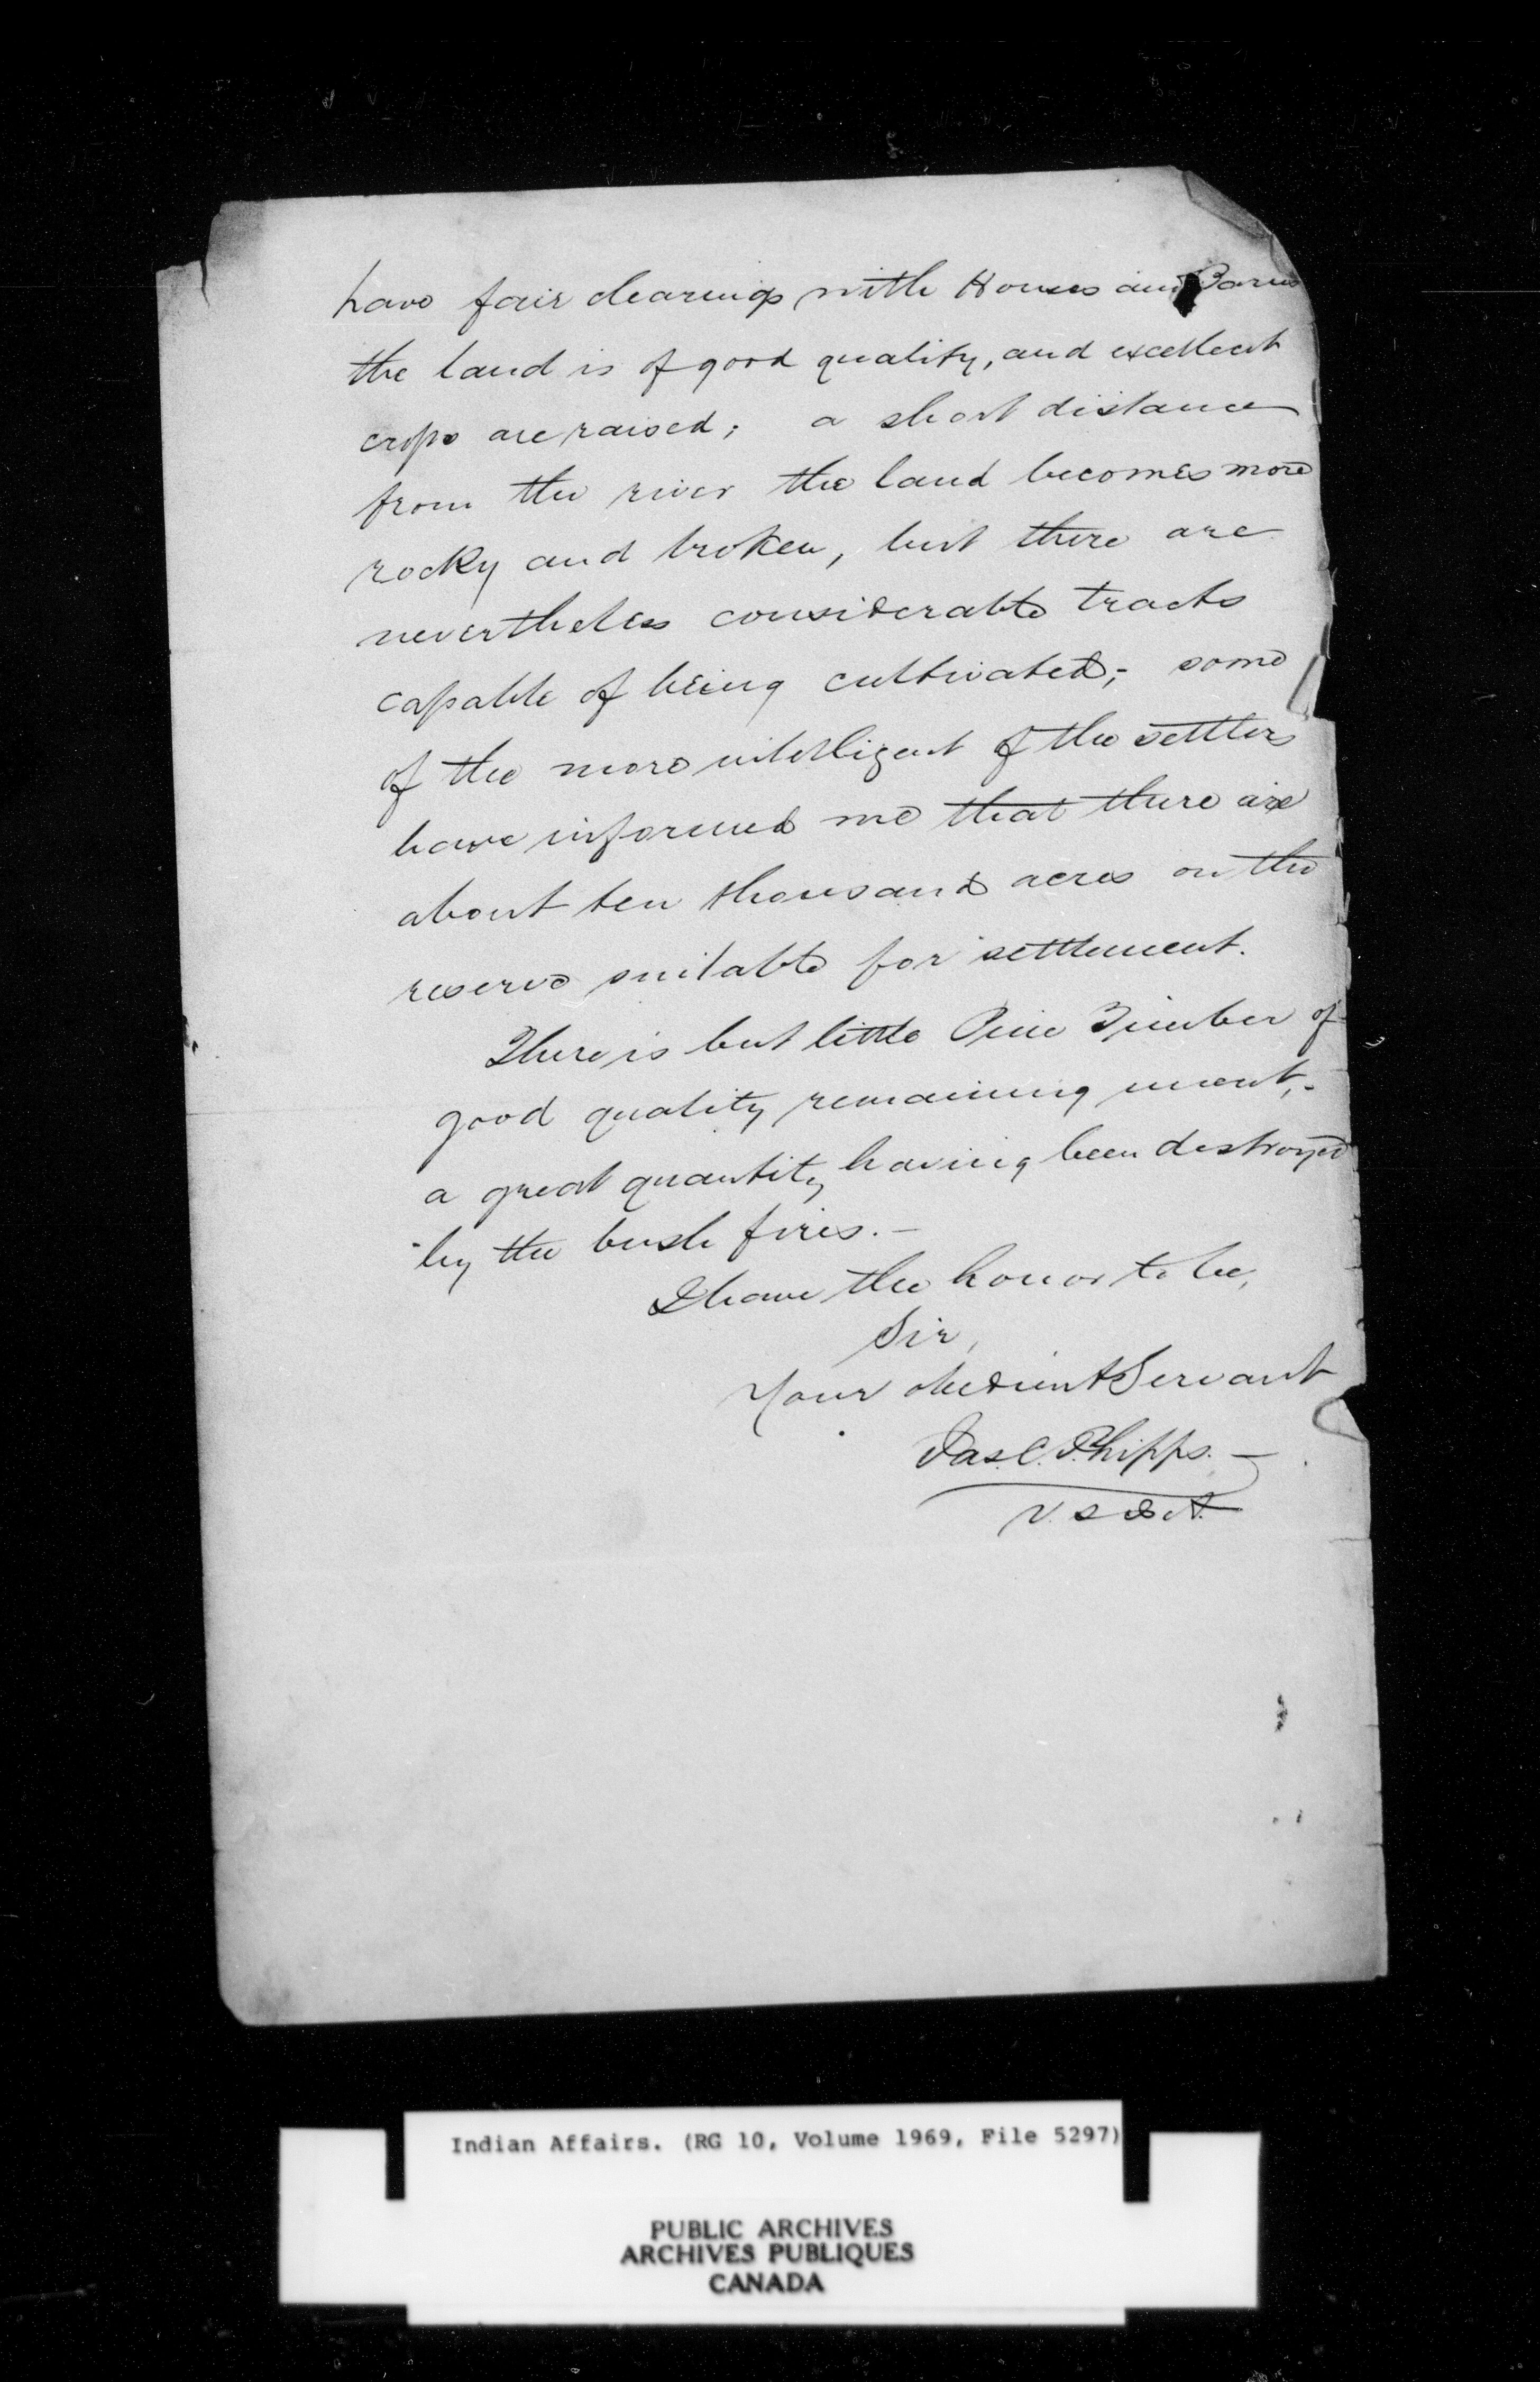 have fair clearings with Houses and Barns
the land is of good quality, and excellent
crops are raised; a short distance
from the river the land becomes more
rocky and broken, but there are
nevertheless considerable tracts
capable of being cultivated;- some
of the more intelligent of the settlers
have informed me that there are
about ten thousand acres on the
reserve suitable for settlement.
There is but little Pine Timber of
good quality remaining uncut,-
a great quantity having been destroyed
by the bush fires.-
I have the honor to be,
Sir,
Your obedient Servant
Jas. C. Phipps.-
V. S & A.
Indian Affairs. (RG 10, Volume 1969, File 5297)
PUBLIC ARCHIVES
ARCHIVES PUBLIQUES
CANADA